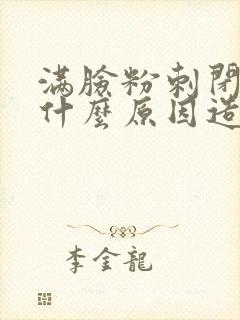 滿臉粉刺閉
什麼原因造
李金龍